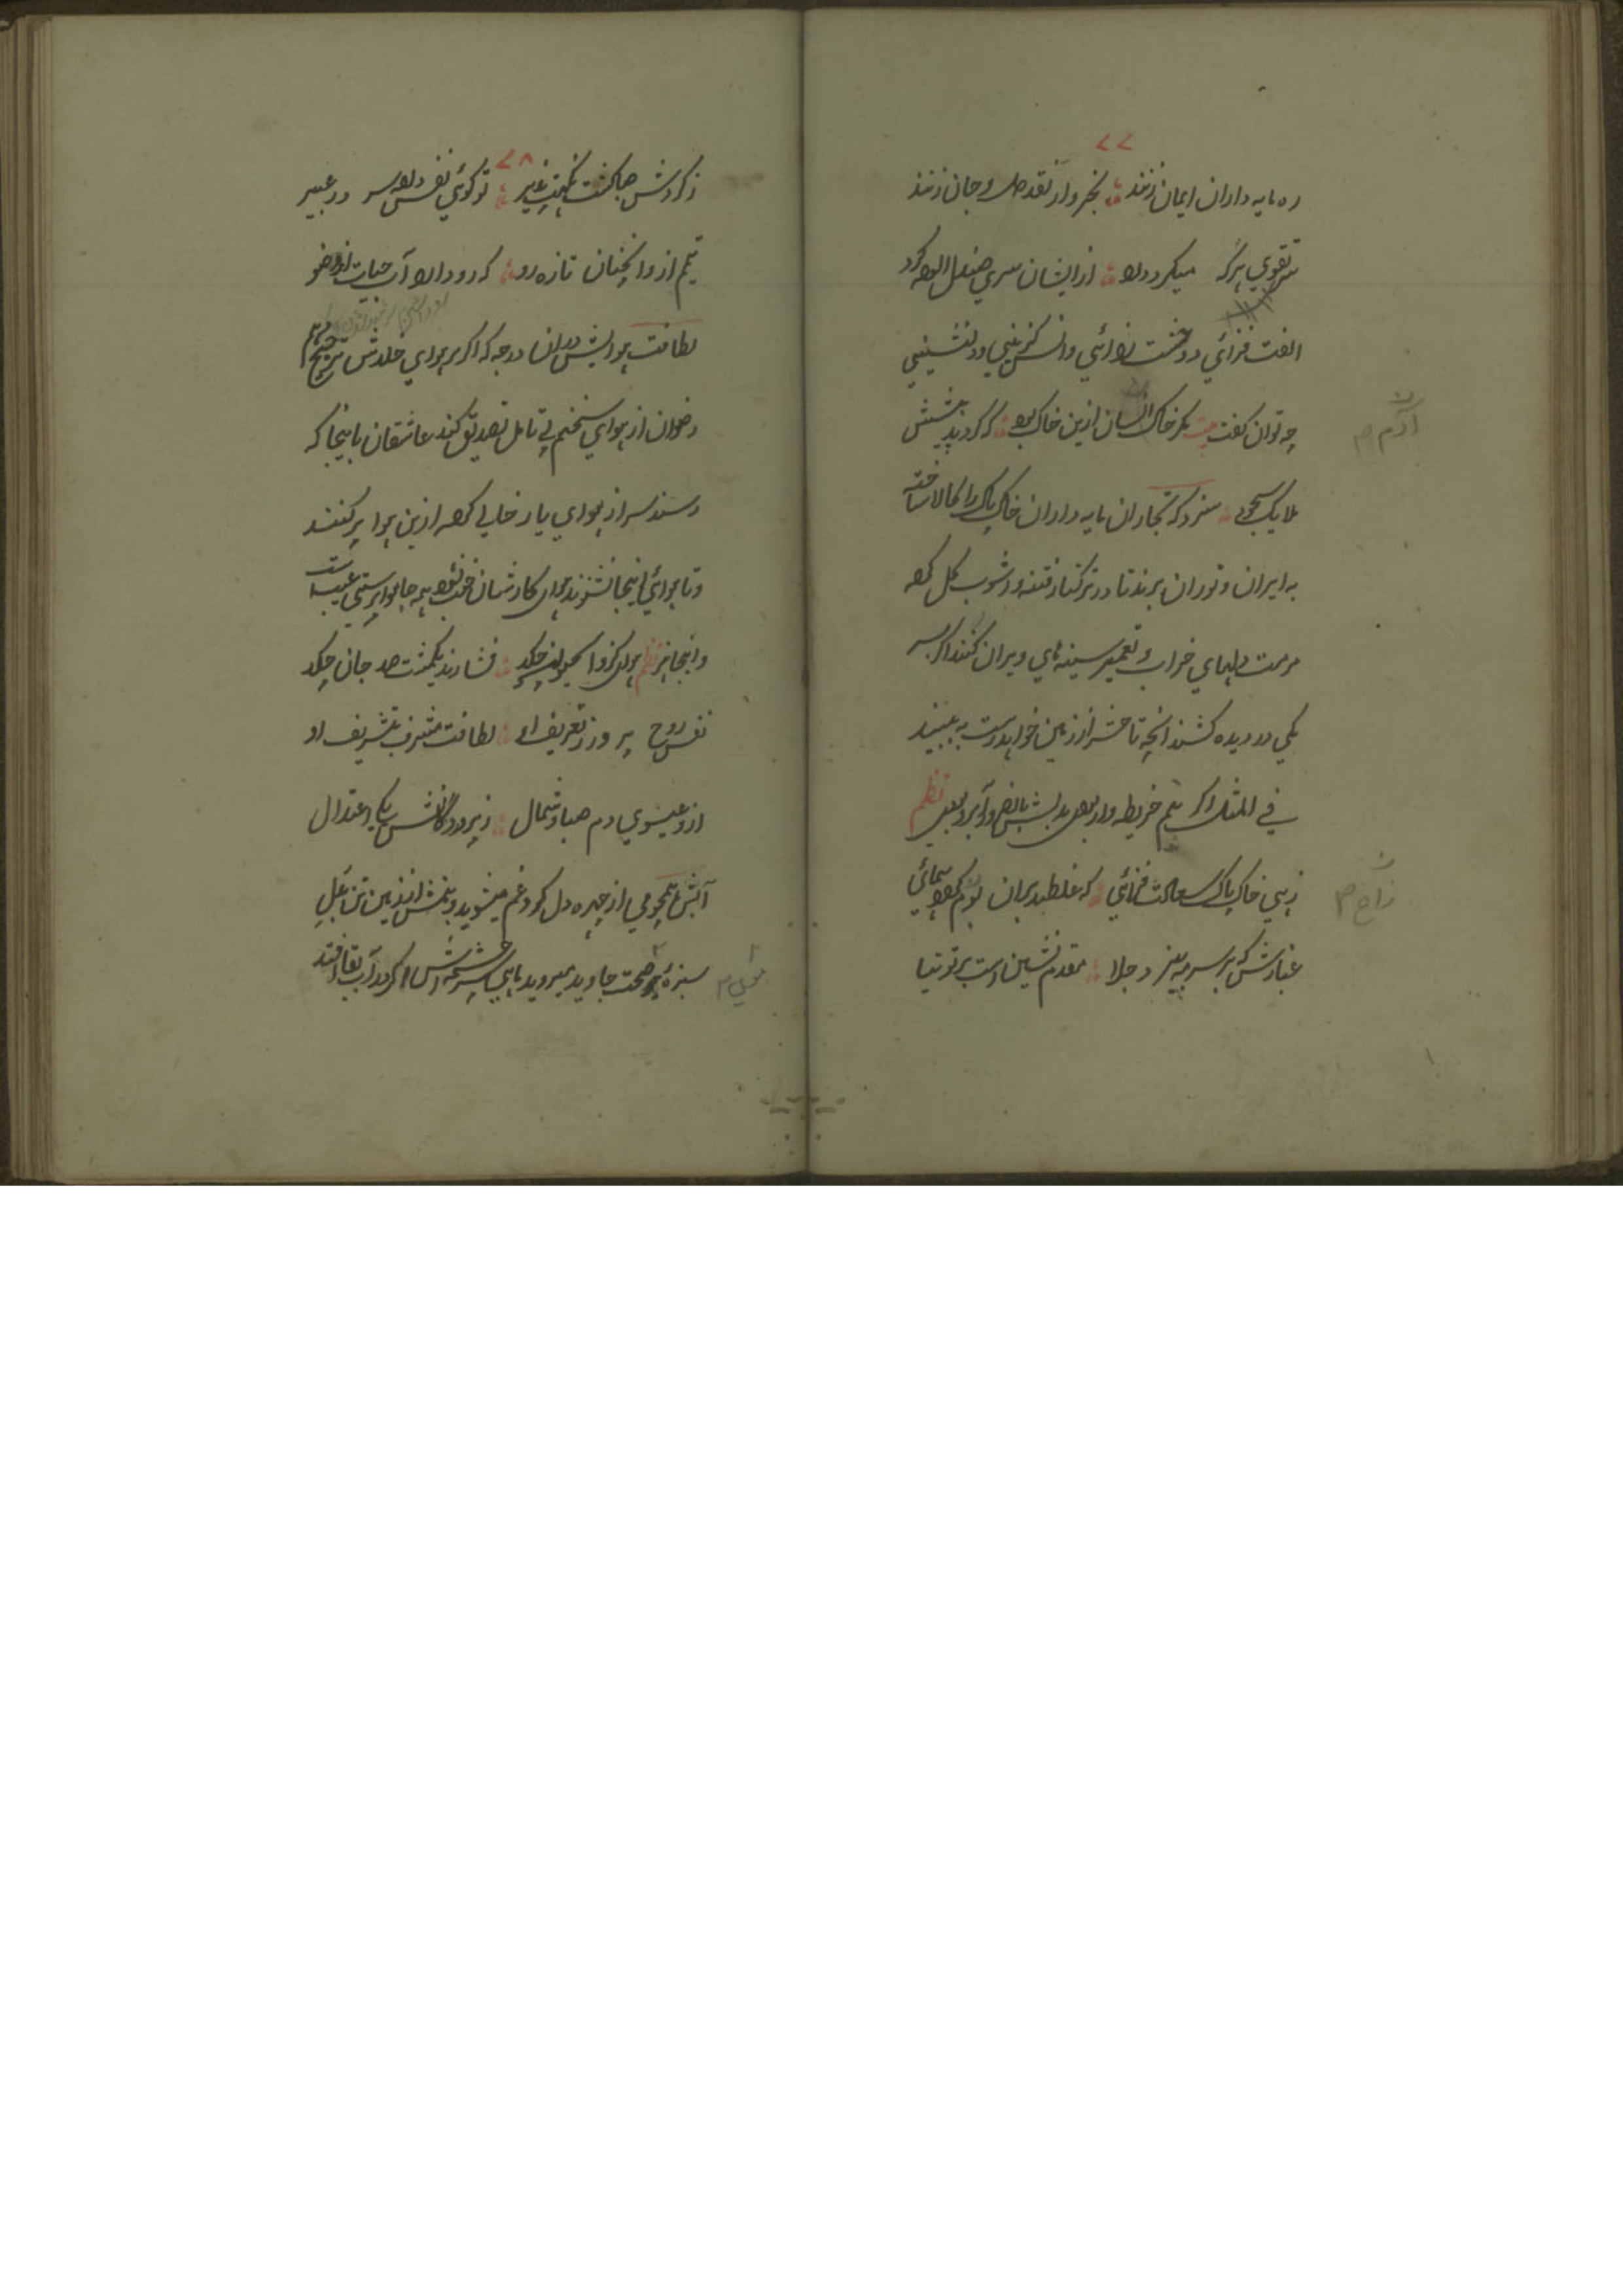 ۷۷
ره مایه داران ایمان زنند نخرد از نقد دل و جان زنند
سر تقوی هر که میکرد درد از ایشان سری صندل آلود کرد
الفت فزائی و وحشت زدائی و انس گزینی و دلنشینی
چه توان گفت بیت مگر خاک انسان ازین خاک بود که گردید پیشش
ملایک سجود سزد که تجاران مایه داران خاک پاک را کالا ساخته
به ایران و توران برند تا در ترکتاز فتنه و آشوب گل کرده
مرمت دلهای خراب و تعمیر سینه های ویران کنند اگر سر
یکی در دیده کشند آنچه تا حشر از زمین خواهد رست به بینند
فی المثل اگر یتیم خریطه وار بود بدلش بالغ در آبرو بود نظم
زهی خاک پاک سعادت فزائی که غلطید بران بوم کرد همائی
غبارش که بر سرمه بیزد جلا مقدم نشین است بر توتیا
آدم م
م
۷۸
ز گردش صبا گشت نکهت پذیر تو گوئی نفس داده سر در عبیر
یتیم از و آنچنان تازه رو که رو داده آب حیات از وضو
لطافت هوایش بدان درجه که اگر بر هوای خلدش ترجیح دهم
رضوان از هوای سخنم بی تامل تصدیق کند عاشقان باینجا که
رسند سر از هوای یار خالی کرده ازین هوا پر کنند
و تا هوائی اینجا نشوند هوای کارشان خوب نشود همه جا هوا پرستی عیب است
و اینجا هنر نظم هوای کزو آب حیوان چکد فشارند یکمشت صد جان چکد
نفس روح پرور ز تعریف او لطافت مشرف بتشریف او
ازو عیسوی دم صبا و شمال ز پروردگانش یکی اعتدال
آبش بتموجی از چهره دل گرد غم میشوید و بنمش از زمین تن علیل
سبزه صحت جاوید میروید ماهی سرچشمه اش اگر در آب بقا افتد